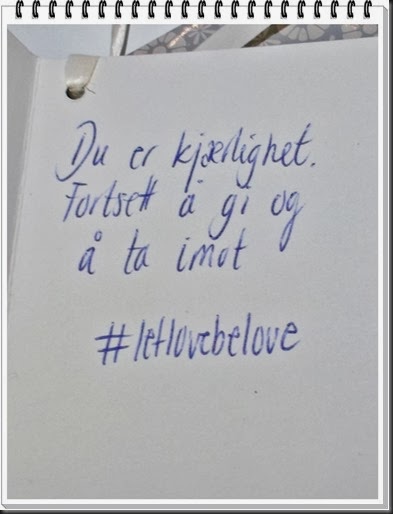 Du er kjærlighet.
Fortsett å gi og
å ta imot
#letlovebelove